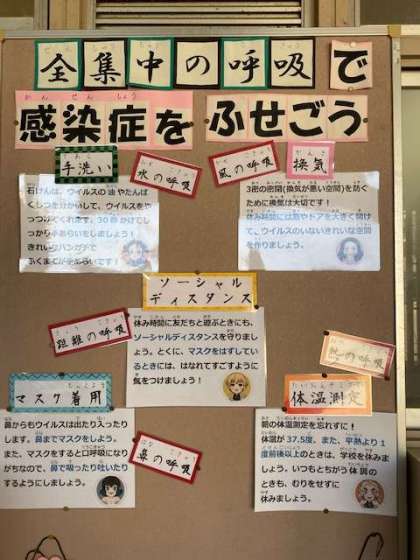 全集中の呼吸で
感染症をふせごう
手洗い
水の呼吸
石けんは、ウイルスの油やたんぱ
くしつを分かいして、ウイルスをや
っつけてくれます。30秒かけてし
っかり手あらいをしましょう!
きれいなハンカチで
ふくまでが手あらいです!
風の呼吸
換気
3密の密閉(換気が悪い空間)を防ぐ
ために換気は大切です!
休み時間には窓やドアを大きく開け
て、ウイルスのいないきれいな空間
を作りましょう。
ソーシャル
ディスタンス
距離の呼吸
休み時間に友だちと遊ぶときにも、
ソーシャルディスタンスを守りまし
ょう。とくに、マスクをはずしてい
るときには、はなれてすごすように
気をつけましょう!
マスク着用
鼻からもウイルスは出たり入ったり
します。鼻までマスクをしよう。
また、マスクをすると口呼吸になり
がちなので、鼻で吸ったり吐いたり
するようにしましょう。
鼻の呼吸
の呼吸
体温測定
朝の体温測定を忘れずに!
体温が37.5度、また、平熱より1
度前後以上のときは、学校を休みま
しょう。いつもとちがう体調の
ときも、むりをせずに
休みましょう。